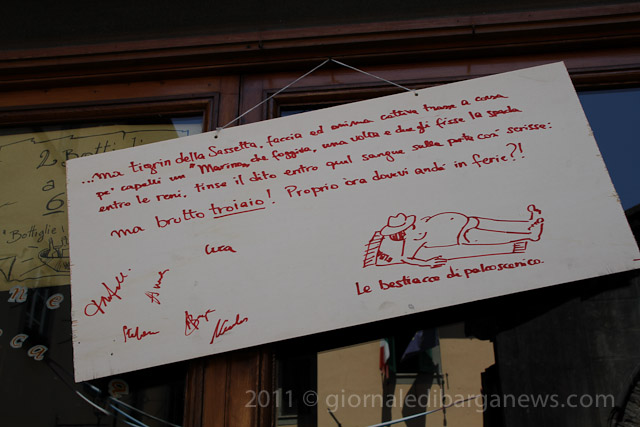 ...ma tigrin della Sassetta, faccia ed anima cattiva trasse a corsa
pe' capelli un "Marino" che fuggiva, una volta e due gli fisse la spada
entro le reni, tinse il dito entro quel sangue sulla porta così scrisse:
ma brutto troiaio! Proprio ora dovevi andà in ferie?!
Luca
Stefano
Le bestiacce di palcoscenico.
2 Botti
a
6
"Bottiglie!
ne
ca
2011 © giornaledibarganews.com